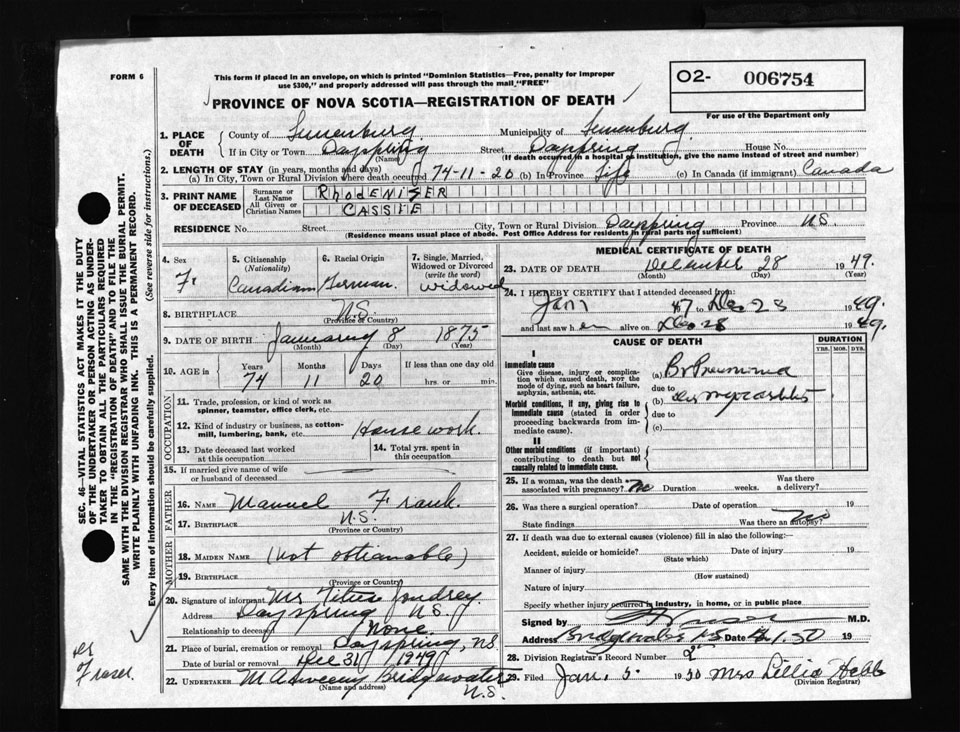 FORM 6
This form if placed in an envelope, on which is printed "Dominion Statistics—Free, penalty for improper
use $300," and properly addressed will pass through the mail "FREE"
O2- 006754
PROVINCE OF NOVA SCOTIA—REGISTRATION OF DEATH
For use of the Department only
1. PLACE OF DEATH
County of Lunenburg Municipality of Lunenburg
If in City or Town Dayspring Street Dayspring House No.
(Name) (If death occurred in a hospital or institution, give the name instead of street and number)
2. LENGTH OF STAY (in years, months and days)
(a) In City, Town or Rural Division where death occurred 74-11-20 (b) In Province life (c) In Canada (if immigrant) Canada
3. PRINT NAME OF DECEASED
Surname or Last Name RhodeNiSER
All Given or Christian Names CASSIE
RESIDENCE No. Street City, Town or Rural Division Dayspring Province N.S.
(Residence means usual place of abode. Post Office Address for residents in rural parts not sufficient)
4. Sex F.
5. Citizenship (Nationality) Canadian
6. Racial Origin German.
7. Single, Married, Widowed or Divorced (write the word) widowed
8. BIRTHPLACE N.S.
(Province or Country)
9. DATE OF BIRTH January 8 1875
(Month) (Day) (Year)
10. AGE in Years Months Days If less than one day
74 11 20 hrs. or min.
OCCUPATION
11. Trade, profession, or kind of work as spinner, teamster, office clerk, etc.
12. Kind of industry or business, as cotton-mill, lumbering, bank, etc. House work.
13. Date deceased last worked at this occupation
14. Total yrs. spent in this occupation
15. If married give name of wife or husband of deceased
FATHER
16. NAME Manuel Frank.
17. BIRTHPLACE N.S.
(Province or Country)
MOTHER
18. MAIDEN NAME (not obtianable)
19. BIRTHPLACE
(Province or Country)
20. Signature of informant Mrs Titus Joudrey.
Address Dayspring N.S.
Relationship to deceased None
21. Place of burial, cremation or removal Dayspring, N.S.
Date of burial or removal Dec 31 1949
22. UNDERTAKER M A Sweeny Bridgewater
(Name and address) N.S.
MEDICAL CERTIFICATE OF DEATH
23. DATE OF DEATH December 28 1949.
(Month) (Day) (Year)
24. I HEREBY CERTIFY that I attended deceased from:
Jan 47 to Dec 28 1949.
and last saw her alive on Dec 28 1949.
CAUSE OF DEATH
DURATION
YRS. MOS. DYS.
I
Immediate cause
Give disease, injury or complication which caused death, NOT the mode of dying, such as heart failure, asphyxia, asthenia, etc.
(a) Br Pneumonia
due to
Morbid conditions, if any, giving rise to immediate cause (stated in order proceeding backwards from immediate cause).
(b)
due to
(c)
II
Other morbid conditions (if important) contributing to death but not causally related to immediate cause.
25. If a woman, was the death associated with pregnancy? No Duration weeks. Was there a delivery?
26. Was there a surgical operation? Date of operation 19
State findings Was there an autopsy? No
27. If death was due to external causes (violence) fill in also the following:
Accident, suicide or homicide? Date of injury 19
(State which)
Manner of injury
(How sustained)
Nature of injury
Specify whether injury occurred in industry, in home, or in public place
Signed by M.D.
Address Bridgewater NS Date 19
28. Division Registrar's Record Number 2
29. Filed Jan. 5. 1950 Mrs Lillia Hebb
(Division Registrar)
SEC. 46—VITAL STATISTICS ACT MAKES IT THE DUTY
OF THE UNDERTAKER OR PERSON ACTING AS UNDER-
TAKER TO OBTAIN ALL THE PARTICULARS REQUIRED
IN THE "REGISTRATION OF DEATH" AND TO FILE THE
SAME WITH THE DIVISION REGISTRAR WHO SHALL ISSUE THE BURIAL PERMIT.
WRITE PLAINLY WITH UNFADING INK. THIS IS A PERMANENT RECORD.
Every item of information should be carefully supplied. (See reverse side for instructions.)